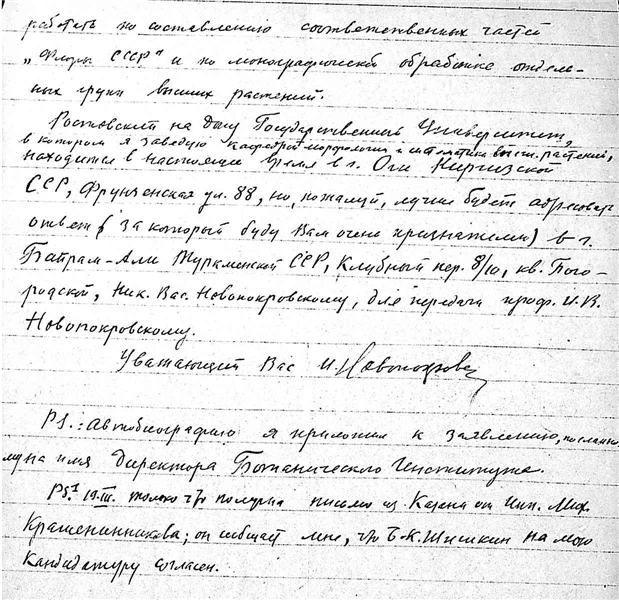 работать по составлению соответственных частей
„Флоры СССР" и по монографической обработке отдель-
ных групп высших растений.
Ростовский на Дону Государственный Университет,
в котором я заведую кафедрой морфологии и систематики высш. растений,
находится в настоящее время в г. Ош Киргизской
ССР, Фрунзенская ул. 88, но, пожалуй, лучше будет адресовать
ответ (за который буду Вам очень признателен) в г.
Байрам-Али Туркменской ССР, Клубный пер. 8/10, кв. Пого-
родской, Ник. Вас. Новопокровскому, для передачи проф. И.В.
Новопокровскому.
Уважающий Вас И. Новопокровс
PS.: Автобиографию я приложил к заявлению, послано
му на имя Директора Ботанического Института.
PS.² 19.III. только что получил письмо из Казани от Ипп. Мих.
Крашенинникова; он сообщает мне, что Б.К. Шишкин на мою
кандидатуру согласен.